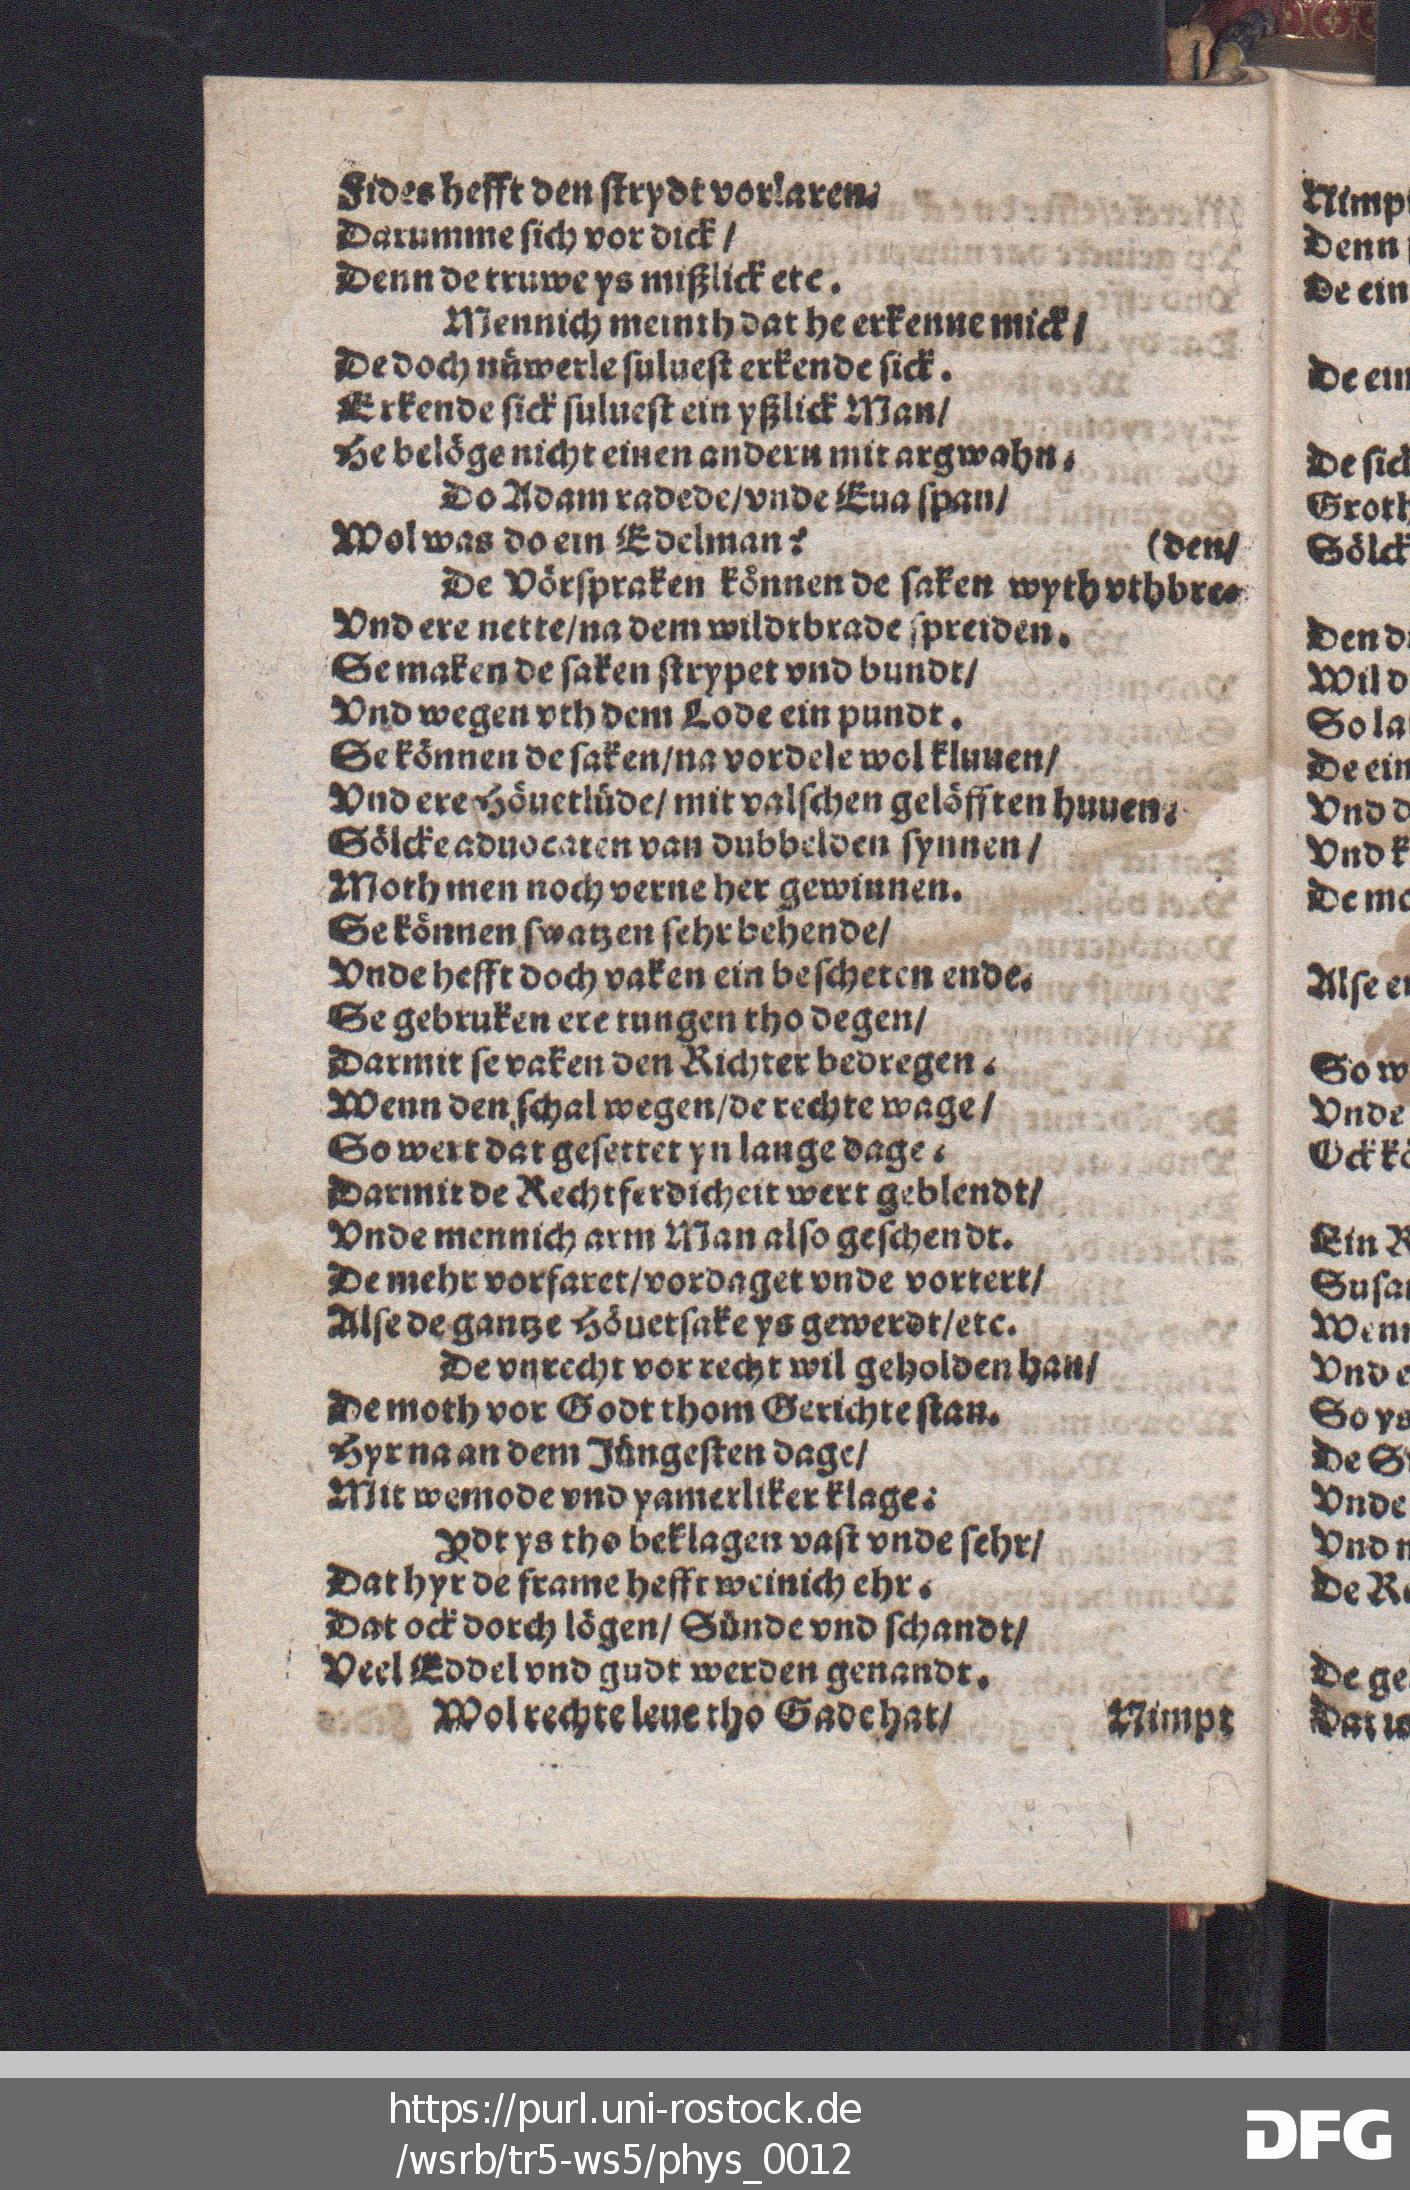 Fides hefft den strydt vorlaren.
Darumme sich vor dick /
Denn de truwe ys mißlick etc.
Mennich meinth dat he erkenne mick /
De doch nüwerle suluest erkende sick.
Erkende sick suluest ein yßlick Man/
He belöge nicht einen andern mit argwahn.
Do Adam radede/vnde Eua span/
Wol was do ein Edelman?
(den/
De Vörspraken können de saken wyth vthbre-
Vnd ere nette/na dem wildtbrade spreiden.
Se maken de saken strypet vnd bundt/
Vnd wegen vth dem Lode ein pundt.
Se können de saken/na vordele wol kluuen/
Vnd ere Höuetlüde/ mit valschen gelöfften huuen.
Sölcke aduocaten van dubbelden synnen /
Moth men noch verne her gewinnen.
Se können swatzen sehr behende/
Vnde hefft doch vaken ein bescheten ende.
Se gebruken ere tungen tho degen/
Darmit se vaken den Richter bedregen.
Wenn den schal wegen/de rechte wage /
So wert dat gesettet yn lange dage.
Darmit de Rechtferdicheit wert geblendt/
Vnde mennich arm Man also geschendt.
De mehr vorfaret/vordaget vnde vortert/
Alse de gantze Höuetsake ys gewerdt/etc.
De vnrecht vor recht wil geholden han/
De moth vor Godt thom Gerichte stan.
Hyr na an dem Jüngesten dage/
Mit wemode vnd yamerliker klage.
Ydt ys tho beklagen vast vnde sehr/
Dat hyr de frame hefft weinich ehr.
Dat ock dorch lögen/ Sünde vnd schandt/
Veel Eddel vnd gudt werden genandt.
Wol rechte leue tho Gade hat/
Nimpt
Nimpt
Denn
De ein
De ein
De sick
Groth
Sölck
Den
Wil d
So la
De ein
Vnd d
Vnd k
De mo
Alse
So w
Vnde
Ock kö
Ein R
Susan
Wenn
Vnd e
So ys
De S
Vnde
Vnd
De Re
De ge
Dat
https://purl.uni-rostock.de
/wsrb/tr5-ws5/phys_0012
DFG